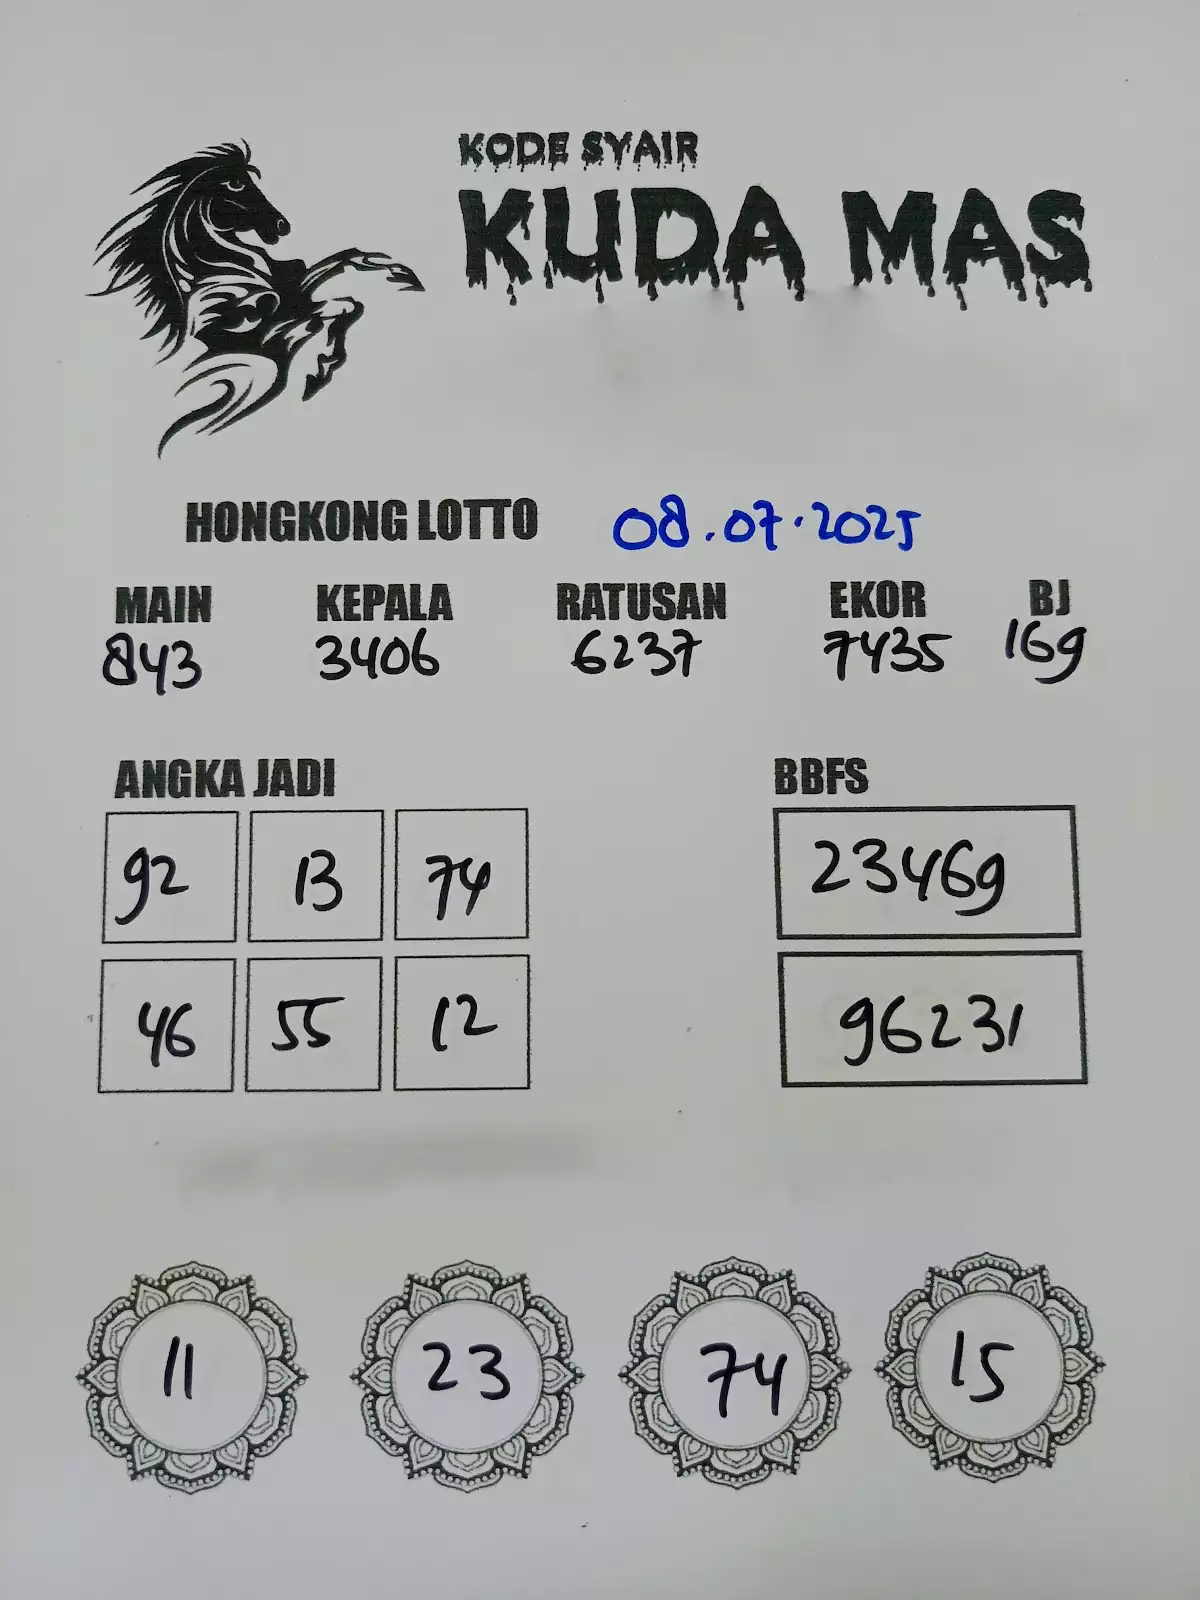 KODE SYAIR
KUDA MAS
HONGKONG LOTTO 08.07.2025
MAIN KEPALA RATUSAN EKOR BJ
843 3406 6237 7435 169
ANGKA JADI BBFS
92 13 74 23469
46 55 12 96231
11 23 74 15